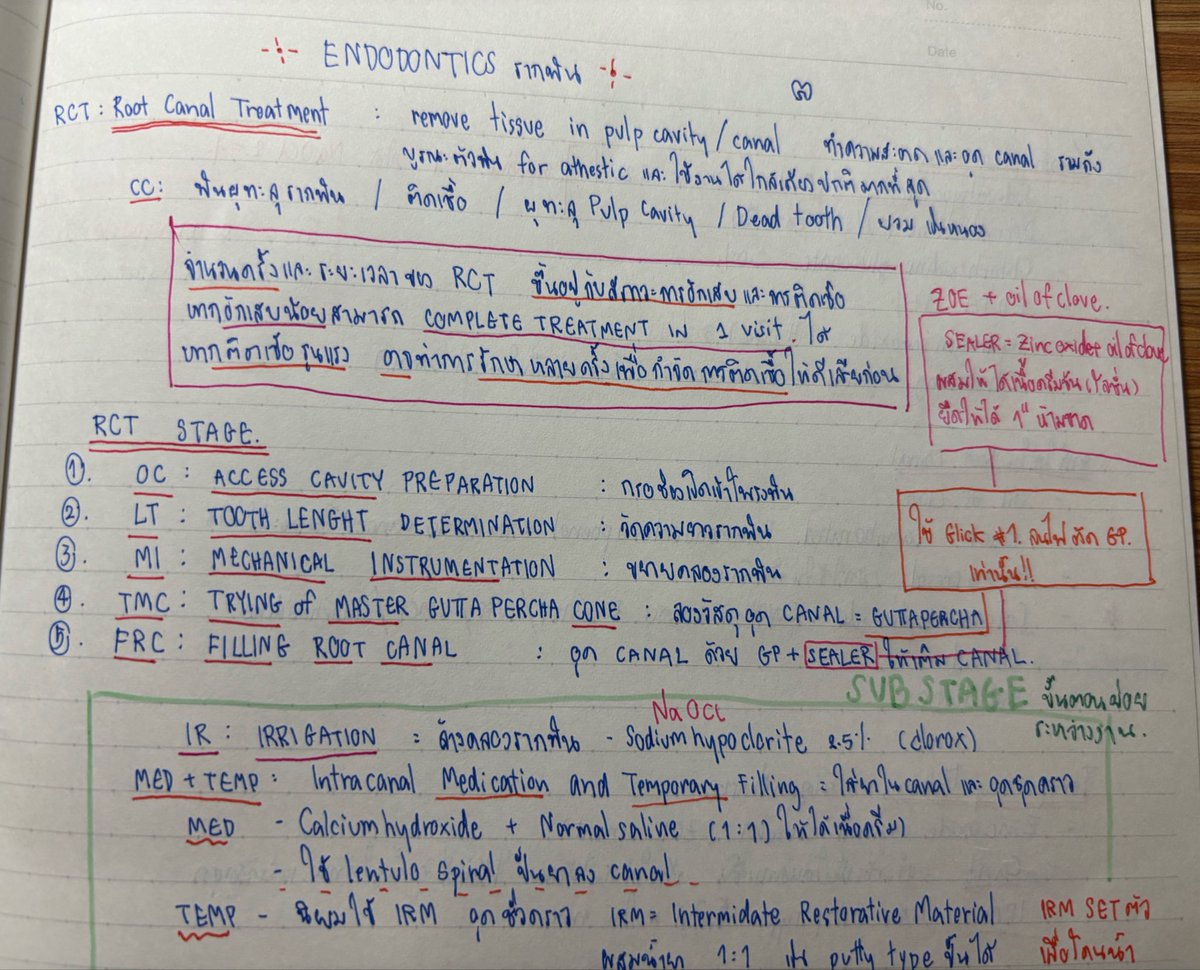 No.
Date
ENDODONTICS รากฟัน
RCT : Root Canal Treatment : remove tissue in pulp cavity/canal ทำความสะอาด และ อุด canal รวมถึง
บูรณะตัวฟัน for athestic และ ใช้งานได้ใกล้เคียงปกติมากที่สุด
CC: ฟันผุทะลุรากฟัน / ติดเชื้อ / ผุทะลุ Pulp Cavity / Dead tooth / บวม เป็นหนอง
จำนวนครั้งและระยะเวลาของ RCT ขึ้นอยู่กับสภาวะการอักเสบ และการติดเชื้อ
หากอักเสบน้อยสามารถ COMPLETE TREATMENT IN 1 visit. ได้
หากติดเชื้อรุนแรง อาจทำการรักษาหลายครั้งเพื่อกำจัดการติดเชื้อให้ดีเสียก่อน
ZOE + oil of clove.
SEALER = Zinc oxide+ oil of clove
ผสมให้ได้เนื้อครีมข้น
ยืดให้ได้ 1" ห้ามขาด
RCT STAGE.
①. OC : ACCESS CAVITY PREPARATION : กรอฟันเปิดเข้าโพรงฟัน
②. LT : TOOTH LENGHT DETERMINATION : วัดความยาวรากฟัน
③. MI : MECHANICAL INSTRUMENTATION : ขยายคลองรากฟัน
④. TMC : TRYING of MASTER GUTTA PERCHA CONE : ลองวัสดุอุด CANAL = GUTTAPERCHA
⑤. FRC : FILLING ROOT CANAL : อุด CANAL ด้วย GP + SEALER ให้เต็ม CANAL.
ใช้ Glick #1. ลนไฟ ตัด GP.
เท่านั้น!!
SUB STAGE ขั้นตอนย่อย
ระหว่างงาน.
NaOCl
IR : IRRIGATION = ล้างคลองรากฟัน - Sodium hypoclorite 2.5% (clorox)
MED + TEMP : Intracanal Medication and Temporary Filling = ใส่ยาใน canal และ อุดชุดคราว
MED - Calcium hydroxide + Normal saline (1:1) ให้ได้เนื้อครีม)
- ใช้ lentulo spiral ปั่นยาลง canal.
TEMP - นิยมใช้ IRM อุดชั่วคราว IRM = Intermidate Restorative Material
ผสมน้ำยา 1:1 เป็น putty type ปั้นได้
IRM SET ตัว
เมื่อโดนน้ำ